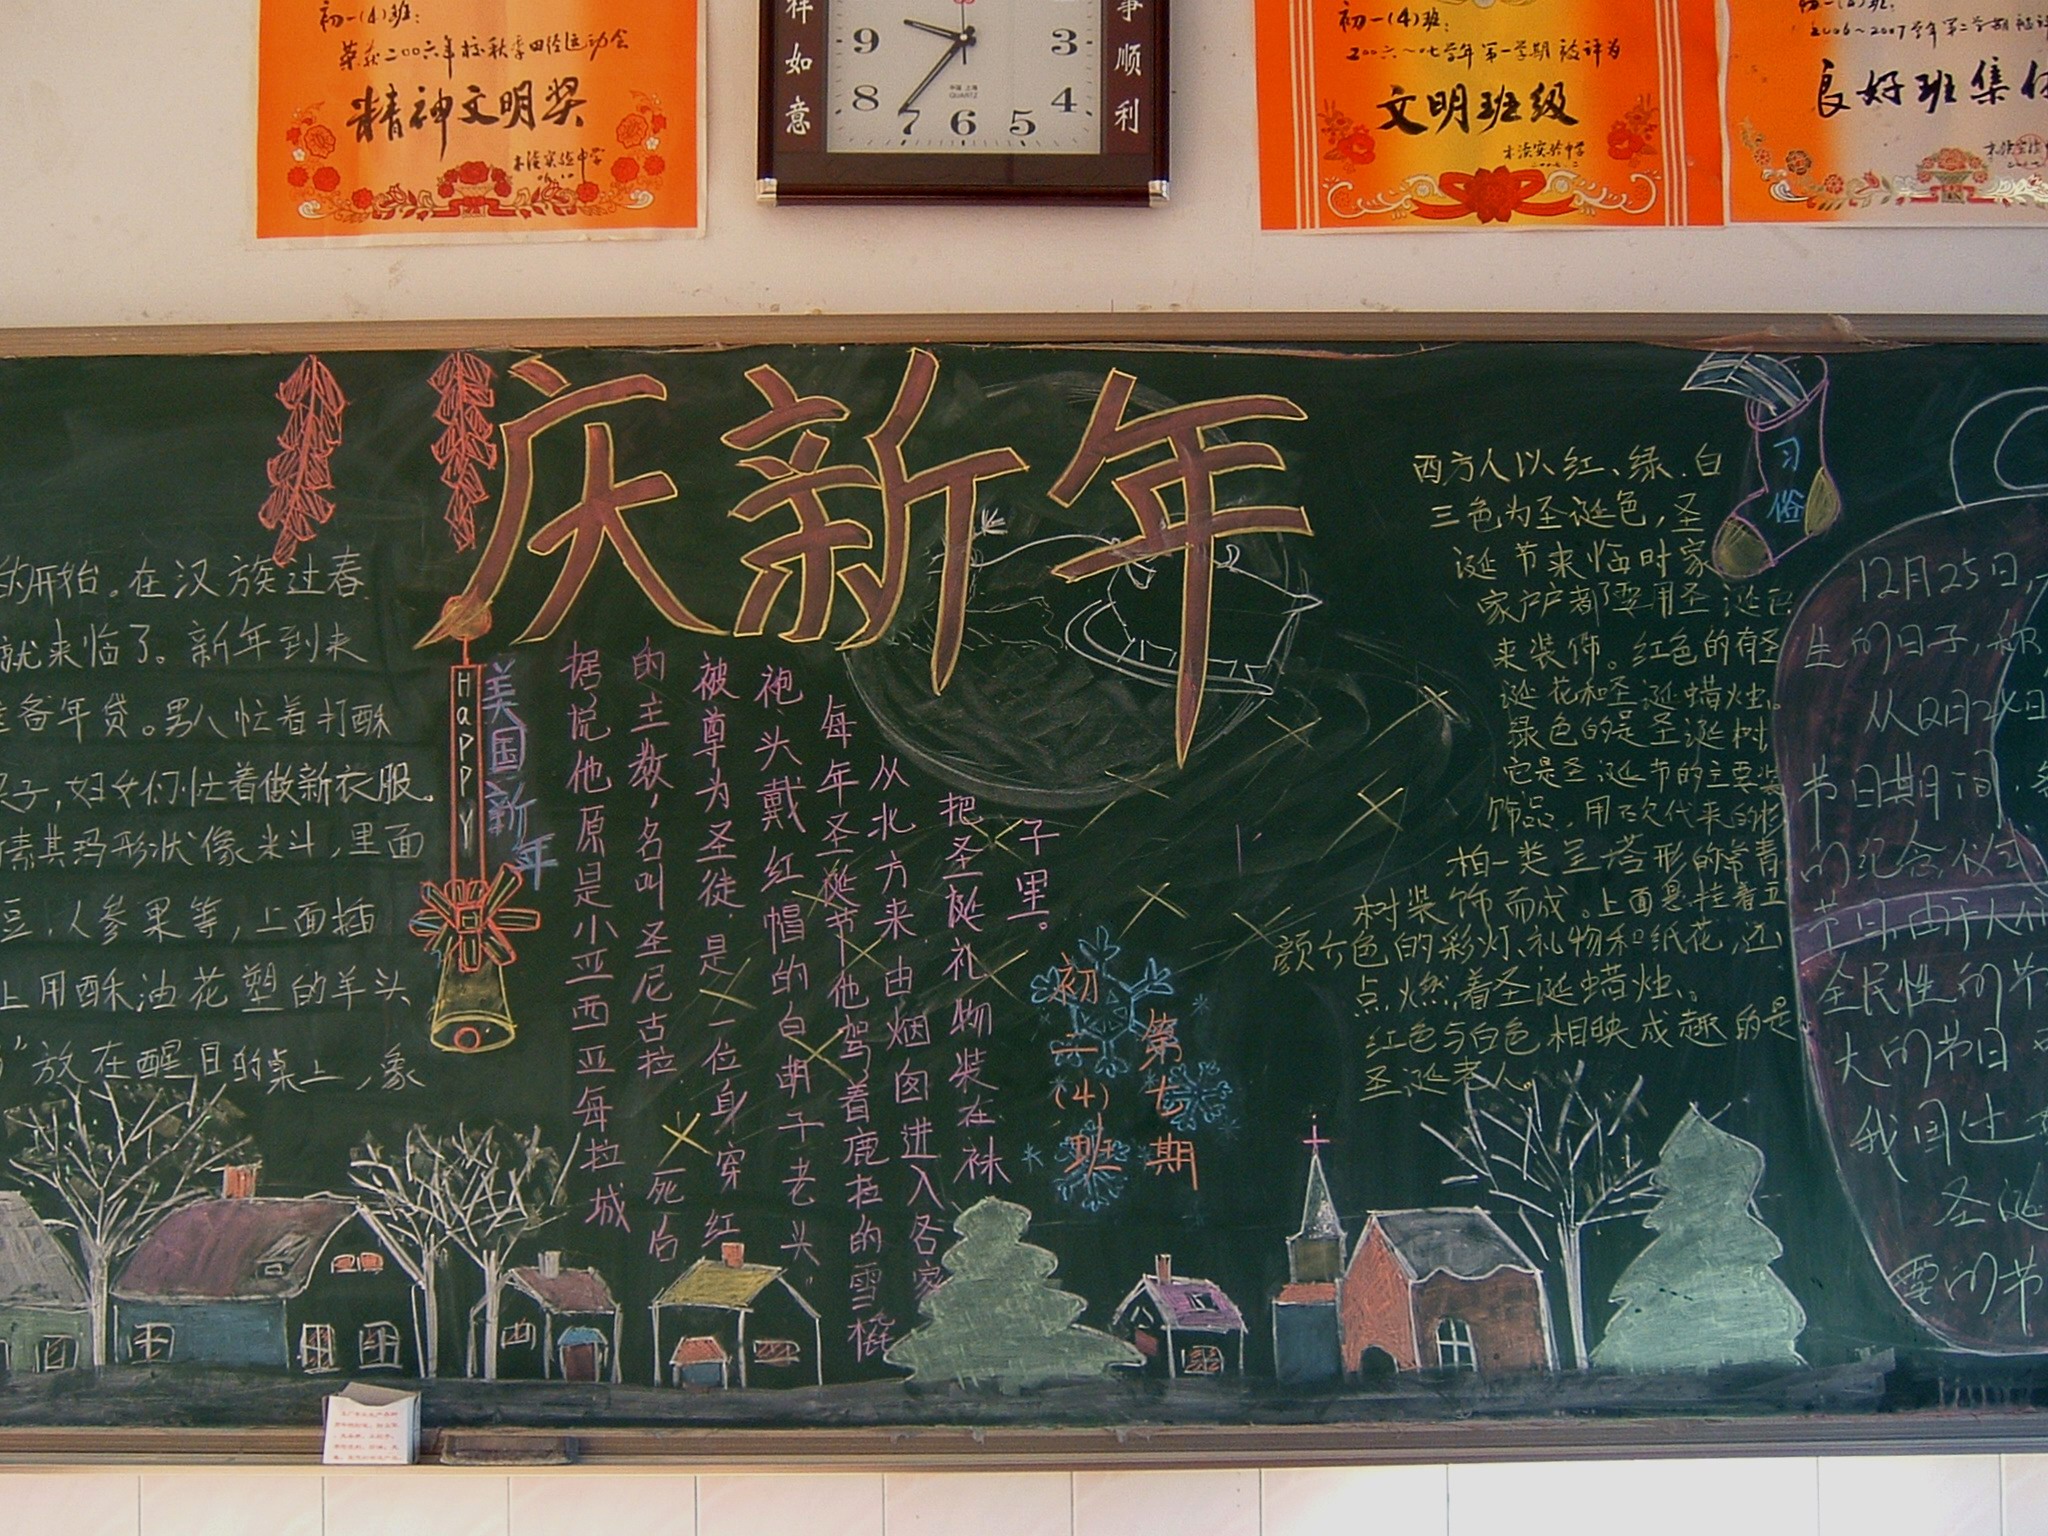 初一(4)班:
荣获二〇〇六年校秋季田径运动会
精神文明奖
木渎实验中学
06.10
祥如意
事顺利
9
3
8
4
7
6
5
中国 上海
QUARTZ
初一(4)班:
二〇〇六~〇七学年第一学期被评为
文明班级
木渎实验中学
2006~2007学年第二学期被评
良好班集体
庆新年
的开始。在汉族过春
就来临了。新年到来
准备年货。男人忙着打酥
子,妇女们忙着做新衣服。
素其玛形状像米斗,里面
豆、人参果等,上面插
上用酥油花塑的羊头
”放在醒目的桌上,象
HaPPY
美国新年
据说他原是小亚西亚每拉城
的主教,名叫圣尼古拉 死后
被尊为圣徒,是一位身穿红
袍头戴红帽的白胡子老头,
每年圣诞节他驾着鹿拉的雪橇
从北方来由烟囱进入各家
把圣诞礼物装在袜
子里。
初二(4)班
第七期
习俗
西方人以红、绿、白
三色为圣诞色,圣
诞节来临时家
家户户都要用圣诞色
来装饰。红色的有圣
诞花和圣诞蜡烛。
绿色的是圣诞树
它是圣诞节的主要装
饰品,用砍伐来的杉
柏一类呈塔形的常青
树装饰而成。上面悬挂着五
颜六色的彩灯、礼物和纸花,还
点燃着圣诞蜡烛。
红色与白色相映成趣的是
圣诞老人。
12月25日,
生的日子,称
从12月24日
节日期间,
的纪念仪式
节日,由于人们
全民性的节
大的节日
我国过
圣诞
要的节